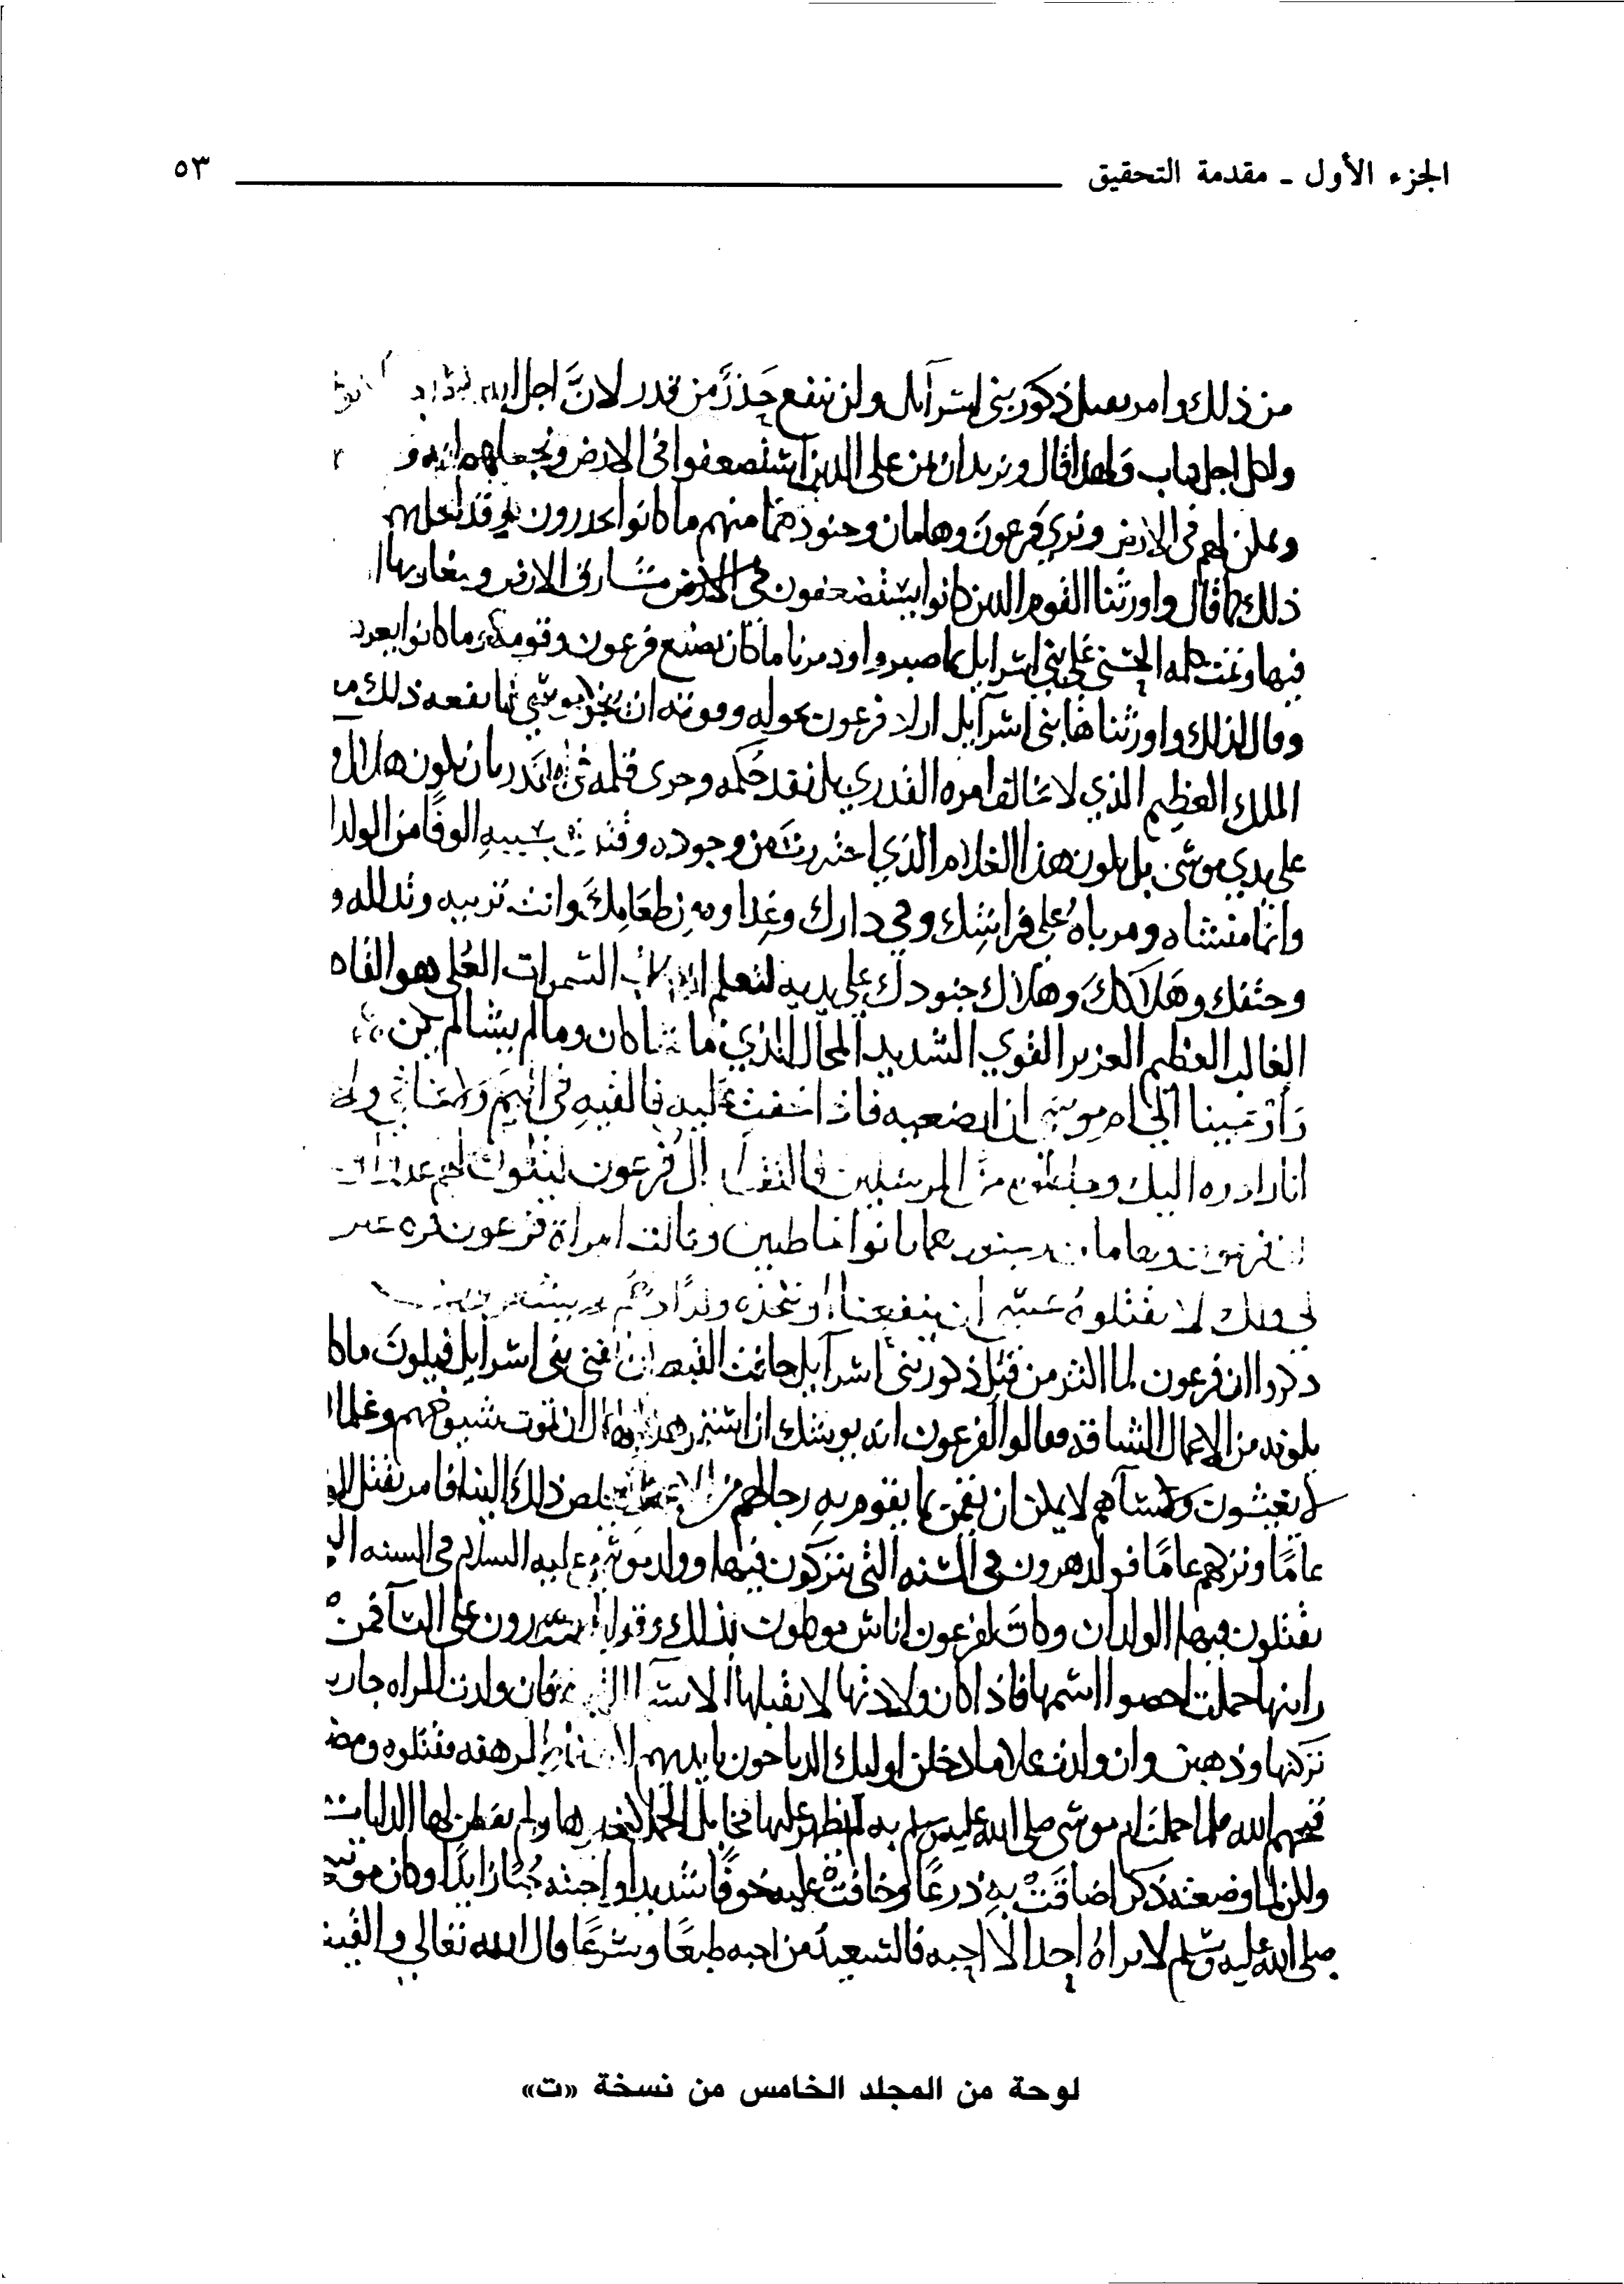 الجزء الأول - مقدمة التحقيق ٥٣
من ذلك وامر بقتل ذكور بني اسرآيل ولن ينفع حَذَرٌ من قدر لانَّ اجل الله
ولكل اجل كتاب ولهذا قال ونريد ان نمن على الذين استضعفوا في الارض ونجعلهم ايمه و
ونمكن لهم في الارض ونري فرعون وهامان وجنودهما منهم ما كانوا يحذرون وقد فعل بهم
ذلك كما قال واورثنا القوم الذين كانوا يستضعفون في الارض مشارق الارض ومغاربها ا
فيها وتمت كلمه الحسنى على بني اسرايل بما صبروا ودمرنا ما كان يصنع فرعون وقومه وما كانوا يعر
وقال كذلك واورثناها بني اسرآيل اراد فرعون بحوله وقوته ان ينجو من موسى فما نفعه ذلك م
الملك العظيم الذي لا يخالف امره القدري بل نفذ حكمه وجرى قلمه بان يكون هلاك
على يدي موسى بل يكون هذا الغلام الذي احترزت من وجوده وقتلت بسببه الوفًا من الولدا
وانما منشاه ومرباهُ على فراشِك وفي دارك وغِداوه من طعَامِك وانت تربيه وتدلله و
وحتفك وهَلاكك وهلاك جنودك على يديه لتعلم ان رب السموات العُلى هو القاه
الغالب العظيم العزيز القوي الشديد المحال الذي ما شا كان وما لم يشا لم يكن
واوحينا الى ام موسى ان ارضعيه فاذا خفت عليه فالقيهِ في اليَم ولا تخافي ولا
انا رادوه اليك وجاعلوه من المرسلين فالتقطه ال فرعون ليكون لهم عدوا
ان فرعون وهامان وجنودهما كانوا خاطيين وقالت امراة فرعون قره عين
لي ولك لا تقتلوهُ عسى ان ينفعنا او نتخذه ولدًا وهُم لا يشعرون
ذكروا ان فرعون لما اكثر من قتل ذكور بني اسرآيل خافت القبط ان يفني بني اسرآيل فيلون ما كا
يلونه من الاعمال الشاقه فقالوا لفرعون انه يوشك ان استمر هذا الحال ان تموت شيوخهم وغلما
لا يعيشون ونساهم لا يمكن ان يقمن بما يقوم به رجالهم من الاعمال فيخلص ذلك الينا فامر بقتل الو
عامًا وتركهم عامًا فولد هرون في السنه التي يتركون فيها وولد موسى عليه السلام في السنه ال
يقتلون فيها الولدان وكان لفرعون اناس موكلون بذلك وقوابل يدورون على النسآ فمن
راينها حملت احصوا اسمها فاذا كان ولادتها لا يقبلها الا نسا القبط فان ولدت المراه جاري
تركنها وذهبن وان ولدت غلاما دخلن اوليك الذباحون بايديهم الشفار المرهفه فقتلوه ومض
قبحهم الله فلما حملت ام موسى صلى الله عليه وسلم به لم يظهر عليها مخايل الحمل كغيرها ولم يفطن لها الدايات
ولكن لما وضعته ذكرا ضاقت به ذرعًا وخافت عليه خوفًا شديدا واحبته حبًا زايدًا وكان موسى
صلى الله عليه وسلم لا يراهُ احد الا احبه فالسعيدُ من احبه طبعًا وشرعًا قال الله تعالى والقيت
لوحة من المجلد الخامس من نسخة «ت»